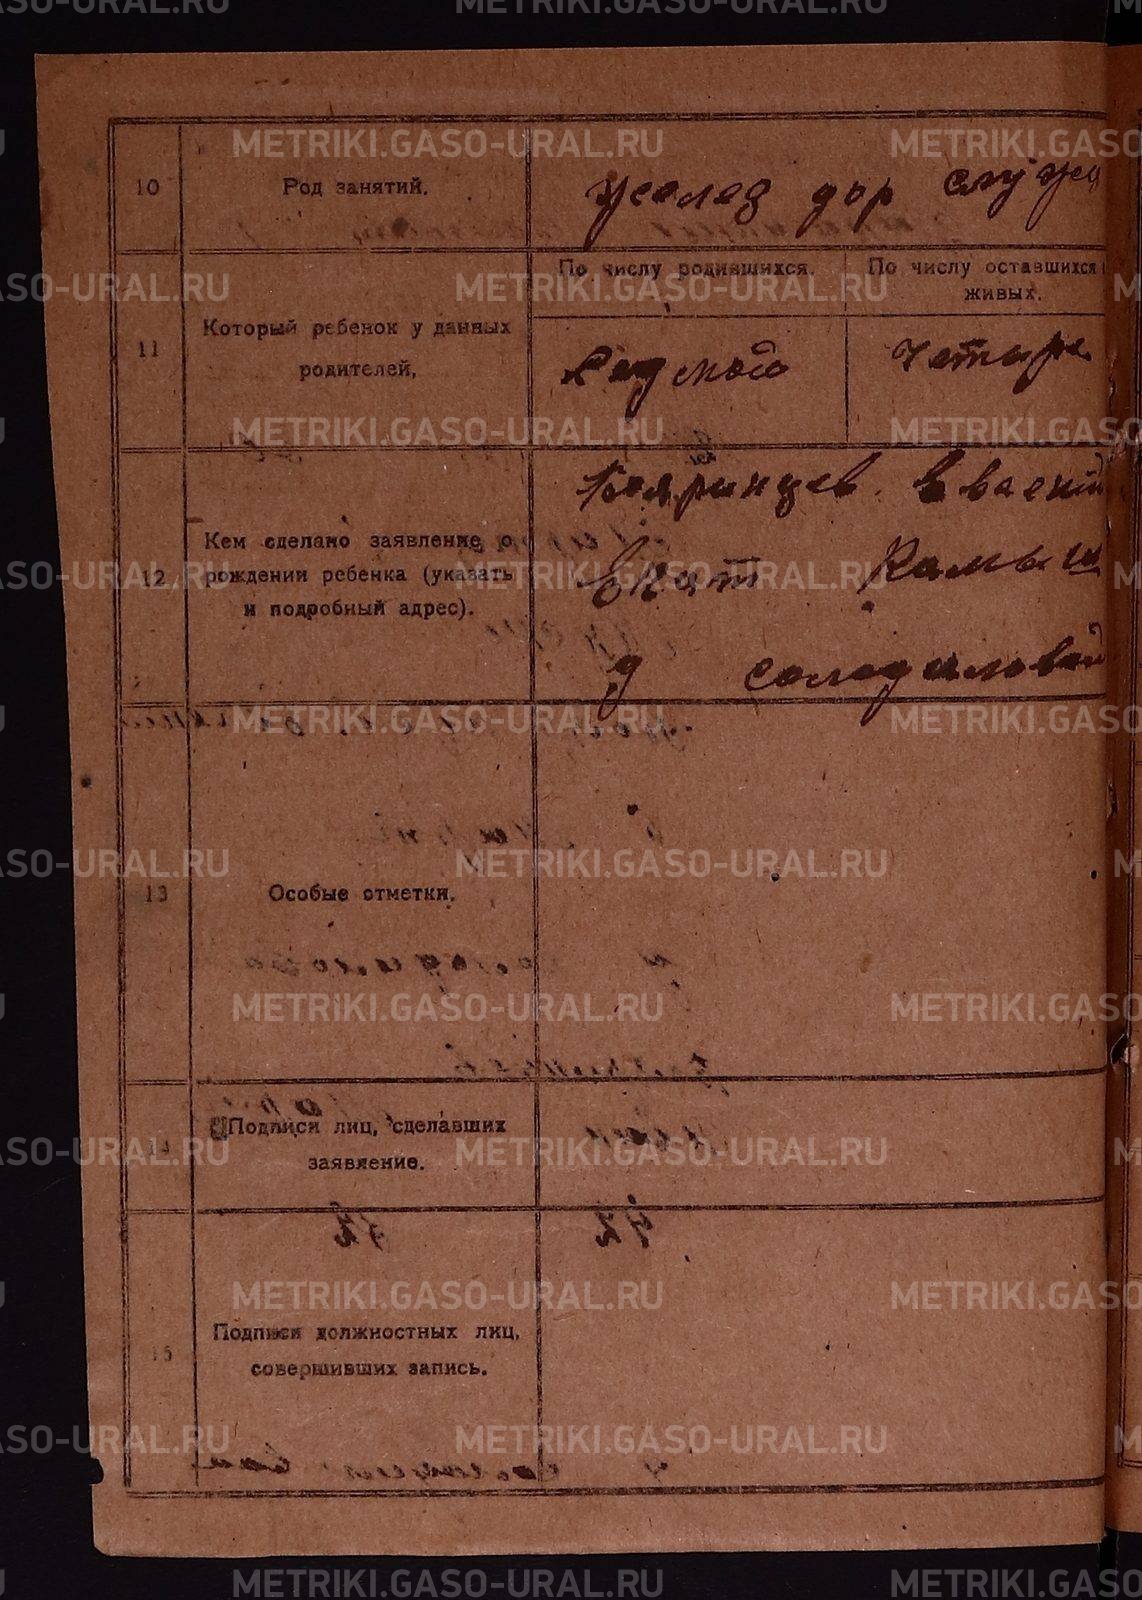 10
Род занятий.
желез дор служ
11
Который ребенок у данных
родителей.
По числу родившихся.
По числу оставшихся
живых.
Седмой
четыре
12
Кем сделано заявление о
рождении ребенка (указать
и подробный адрес).
Бояринцев
Екат Камыш
д солодиловой
13
Особые отметки.
14
Подписи лиц, сделавших
заявление.
15
Подписи должностных лиц,
совершивших запись.
METRIKI.GASO-URAL.RU